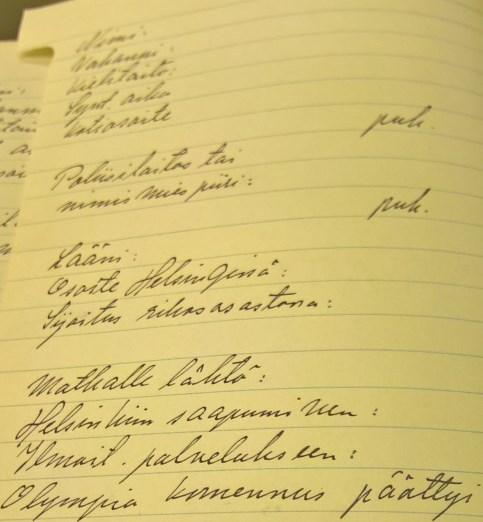 Nimi:
Vakanssi:
Kielitaito:
Synt. aika
Kotiosoite puh.
Poliisilaitos tai
nimismiespiiri: puh.
Lääni:
Osoite Helsingissä:
Sijoitus rikosasastona:
Matkalle lähtö:
Helsinkiin saapuminen:
Ilmoit. palvelukseen:
Olympia komennus päättyi